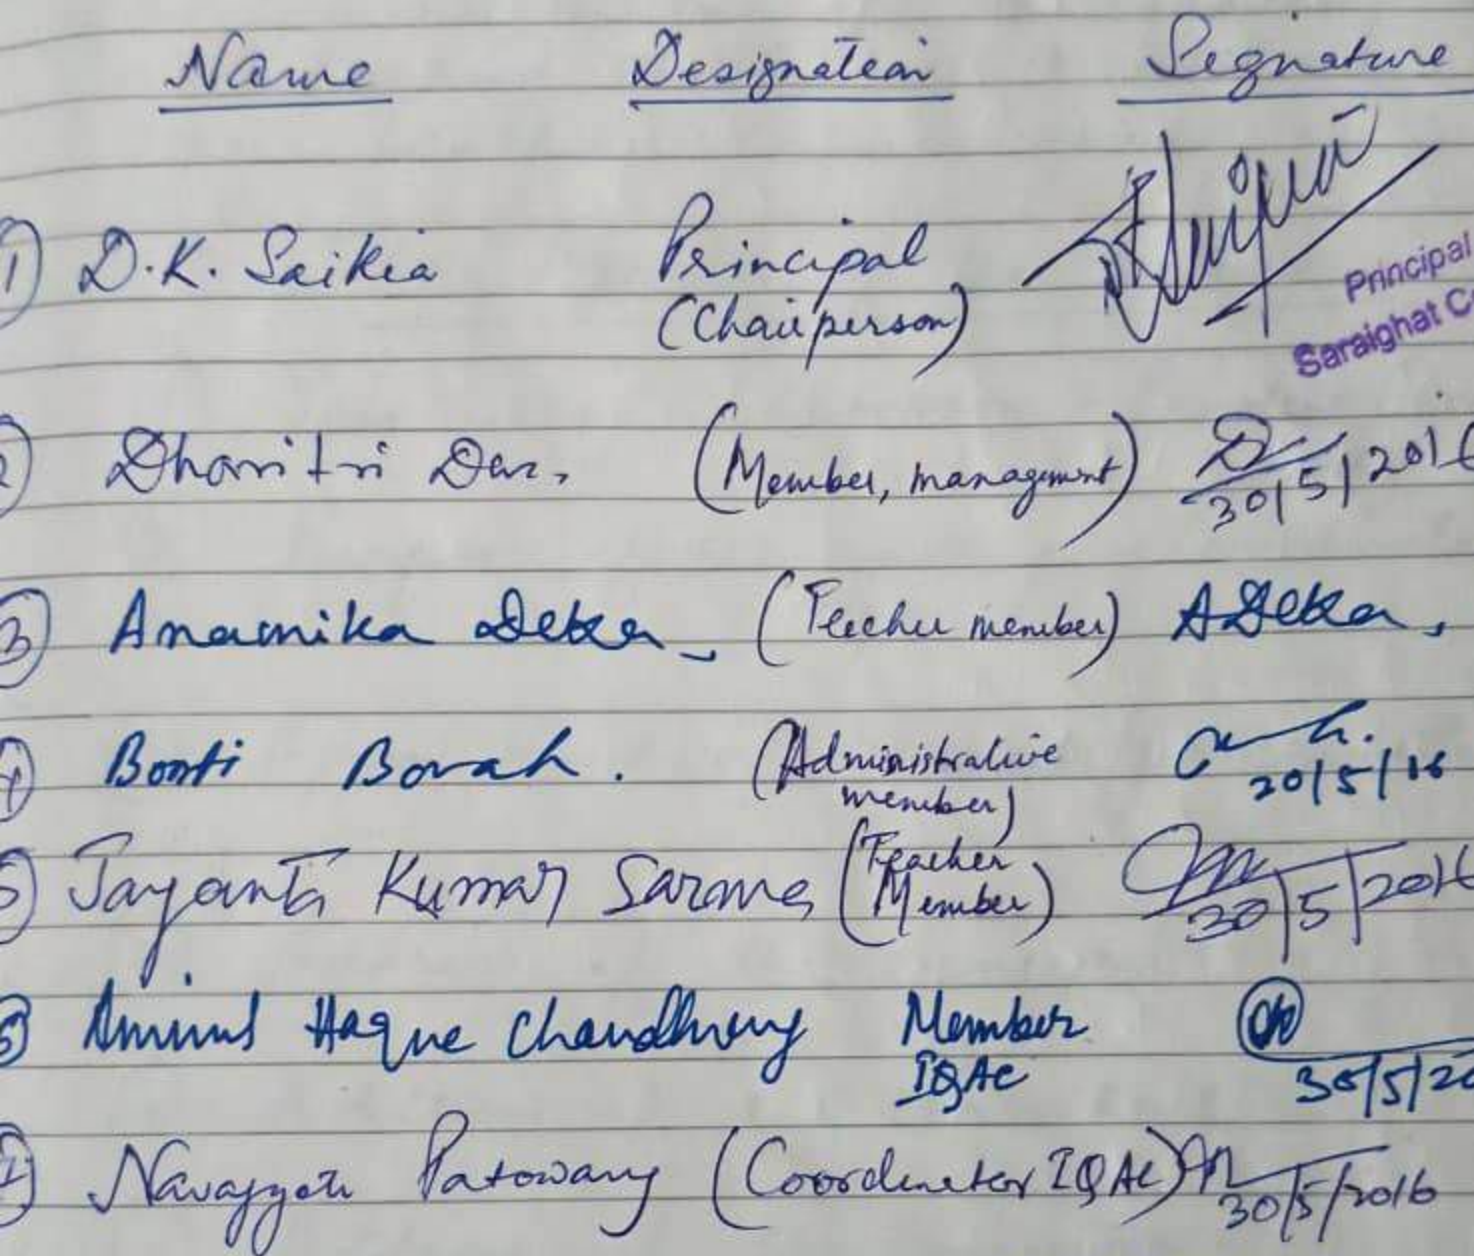 Name Designation Signature
① D.K. Saikia Principal
(Chairperson)
Principal
Saraighat C
② Dharitri Das, (Member, management) 30/5/2016
③ Anamika Deka, (Teacher member) ADeka,
④ Bonti Borah. (Administrative
member) 20/5/16
⑤ Jayanta Kumar Sarma (Teacher
Member) 30/5/2016
⑥ Aminul Haque Chaudhury Member
IQAC 30/5/20
Navajyoti Patowary (Coordinator IQAC) 30/5/2016